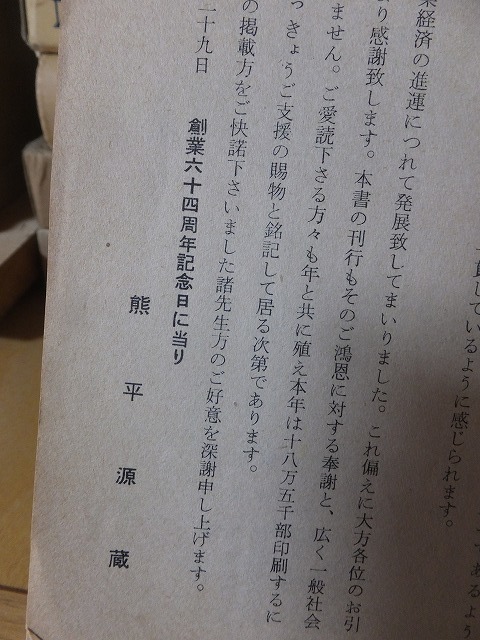 貫しているように感じられます。
あるよう
業経済の進運につれて発展致してまいりました。これ偏えに大方各位のお引
り感謝致します。本書の刊行もそのご鴻恩に対する奉謝と、広く一般社会
ません。ご愛読下さる方々も年と共に殖え本年は十八万五千部印刷するに
っきょうご支援の賜物と銘記して居る次第であります。
の掲載方をご快諾下さいました諸先生方のご好意を深謝申し上げます。
二十九日
創業六十四周年記念日に当り
熊平源蔵